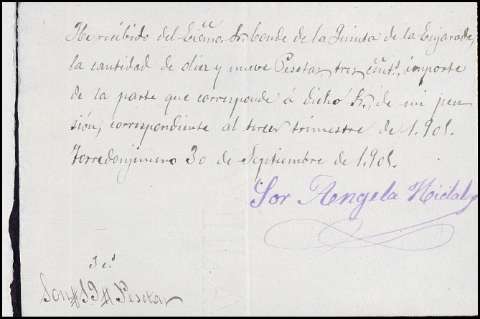 He recibido del Excmo. Sr. Conde de la Quinta de la Enjarada,
la cantidad de diez y nueve Pesetas tres cént.s, importe
de la parte que corresponde á dicho Sr. de mi pen
sión, correspondiente al tercer trimestre de 1.901.
Torredonjimeno 30 de Septiembre de 1.901.
Sor Angela Hidalgo
3 cs
Son # 19 # Pesetas